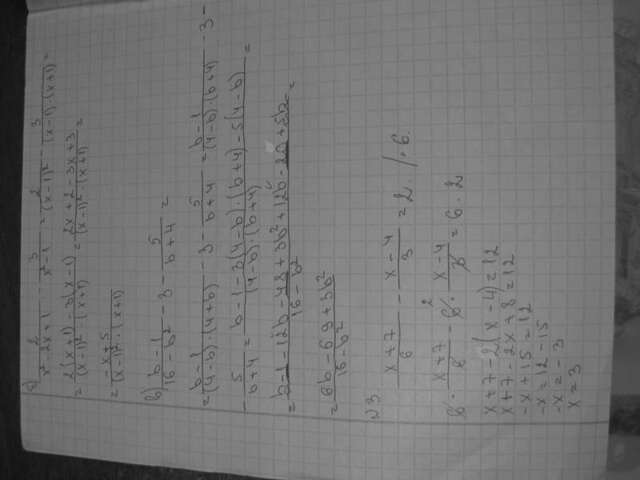 2/(x²-2x+1) - 3/(x²-1) = 2/(x-1)² - 3/((x-1)·(x+1)) =
= (2(x+1)-3(x-1))/((x-1)²·(x+1)) = (2x+2-3x+3)/((x-1)²·(x+1)) =
= (-x+5)/((x-1)²·(x+1))
в) (b-1)/(16-b²) - 3 - 5/(b+4) =
= (b-1)/((4-b)·(4+b)) - 3 - 5/(b+4) = (b-1)/((4-b)·(b+4)) - 3 -
- 5/(b+4) = (b-1-3(4-b)·(b+4)-5(4-b))/((4-b)·(b+4)) =
N3
(x+7)/6 - (x-4)/3 = 2. /·6
6·(x+7)/6 - 6·(x-4)/3 = 6·2
x+7-2(x-4)=12
x+7-2x+8=12
-x+15=12
-x=12-15
-x=-3
x=3